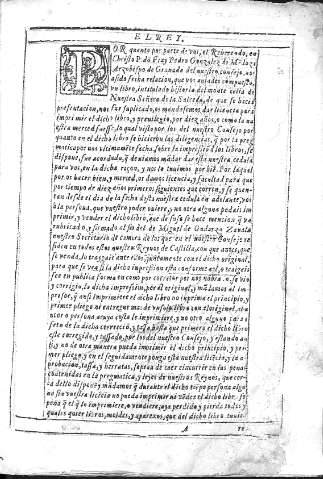 EL REY.
POR quanto por parte de vos, el Reuerendo, en
Christo P. dõ Fray Pedro Gonzalez de Mẽdoza
Arzobispo de Granada del nuestro consejo, nos
fecha relacion, que vos auiades compuesto
vn libro, intitulado historia del monte celia de
Nuestra Señora de la Salceda, de que se hazia
presentacion, nos fue suplicado, os mandassemos dar licencia para
imprimir el dicho libro, y preuilegio, por diez años, o como la
nuestra merced fuesse, lo qual visto por los del nuestro Consejo por
quanto en el dicho libro se hizieron las diligencias, que la
por nos vltimamẽte fecha sobre la impressiõ de los libros, se
dispone, fue acordado, que deuiamos mãdar dar esta nuestra cedula
para vos, en la dicha razon, y nos lo tuuimos por biẽ. Por la qual
por os hazer bien, y merced, os damos licencia, y facultad para que
por tiempo de diez años primeros siguientes que corran, y se quenten
desde el dia de la fecha desta nuestra cedula en adelante, vos
o la persona, que vuestro poder ouiere, y no otra alguna podais imprimir,
y vender el dicho libro, que de suso se haze mencion,
rubricado, y firmado al fin del de Miguel de Ondarza Zauala
nuestro Secretario de camara de los que en el nuestro Consejo residen
en todos estos nuestros Reynos de Castilla, con que antes, que
se venda, lo traygais ante ellos, juntamente con el dicho original,
para que se vea si la dicha impression esta conforme a el, o traygais
fee en publica forma en como por corretor por nos nõbrado, se vio
y corrigio, la dicha impression, por el original, y mãdamos al impressor,
que ansi imprimiere el dicho libro no imprima el principio, y
primer pliego ni entregue mas de vn solo libro con el original, al autor
o persona a cuya costa le imprimiere, y no otro alguno para efeto
de la dicha correcciõ, y tassa, hasta que primero el dicho libro
este corregido, y tassado, por los del nuestro Consejo, y estando ansi,
y no de otra manera pueda imprimir el dicho principio, y primer
pliego, y en el seguidamente ponga esta nuestra licẽcia, y la aprobacion,
tassa, y herratas, so pena de caer e incurrir en las penas
contenidas en la pregmatica, y leyes de nuestros Reynos, que cerca
dello disponẽ, y mãdamos que durante el dicho tiẽpo persona alguna
sin vuestra licẽcia no pueda imprimir ni vẽder el dicho libro, so
pena que el que le imprimiere, o vendiere, aya perdido y pierda todos y
quales quier libros, moldes, y aparejos, que del dicho libro tuuiere
A